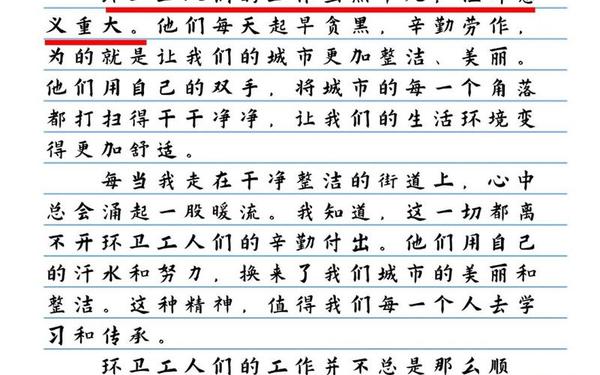 义重大。他们每天起早贪黑，辛勤劳作，
为的就是让我们的城市更加整洁、美丽。
他们用自己的双手，将城市的每一个角落
都打扫得干干净净，让我们的生活环境变
得更加舒适。
每当我走在干净整洁的街道上，心中
总会涌起一股暖流。我知道，这一切都离
不开环卫工人们的辛勤付出。他们用自己
的汗水和努力，换来了我们城市的美丽和
整洁。这种精神，值得我们每一个人去学
习和传承。
环卫工人们的工作并不总是那么顺